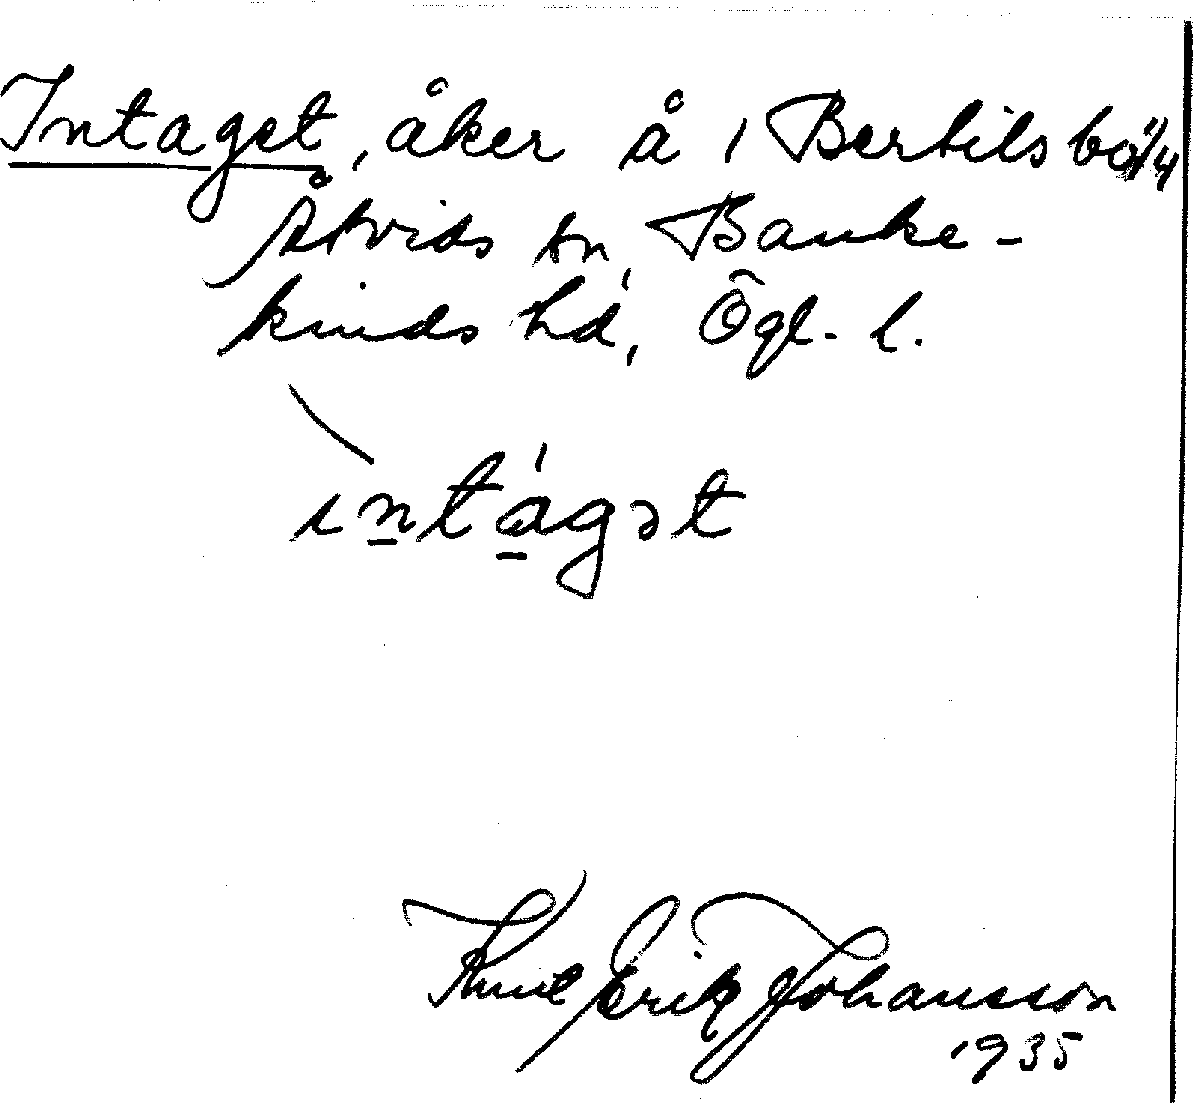 Intaget, åker å 1 Bertilsbo 1/4
Åtvids sn, Banke-
kinds hd, Ögl. l.
intágət
Knut Erik Johansson
1935